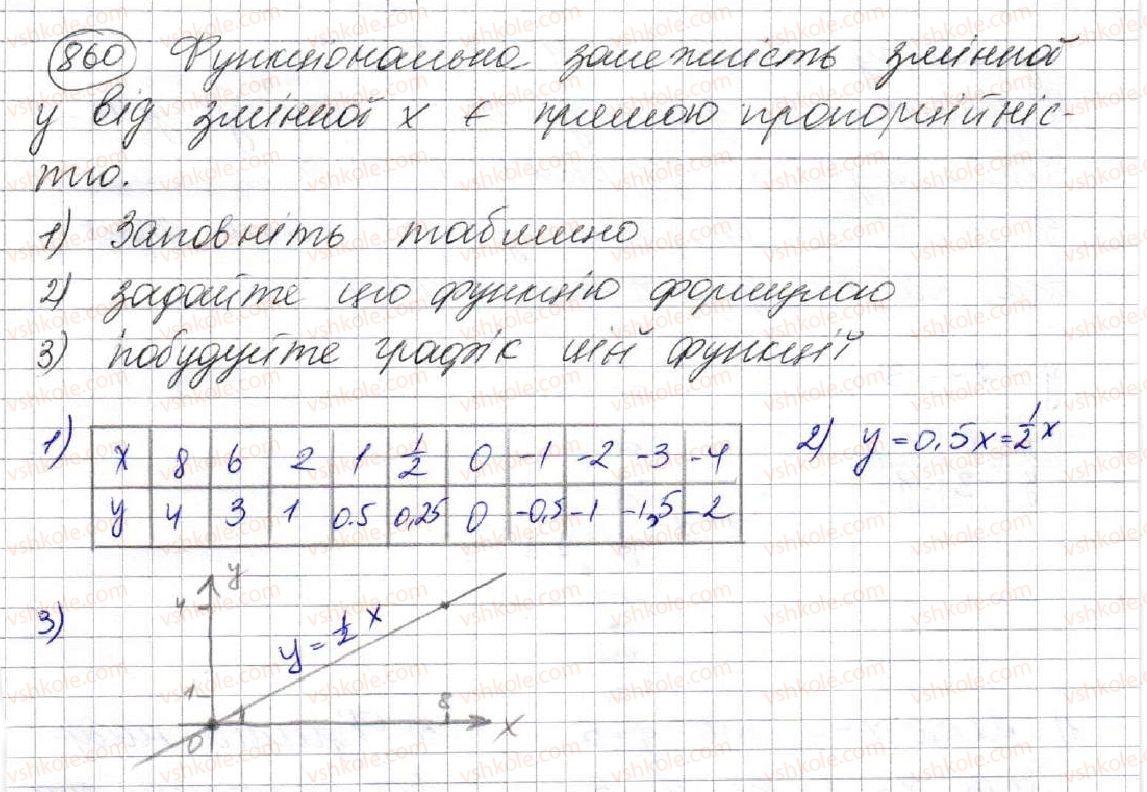 860 Функціональна залежність змінної
у від змінної х є прямою пропорційніс-
тю.
1) Заповніть таблицю
2) задайте цю функцію формулою
3) побудуйте графік цій функції
1)
x 8 6 2 1 1/2 0 -1 -2 -3 -4
y 4 3 1 0.5 0,25 0 -0,5 -1 -1,5 -2
2) y = 0,5x = 1/2 x
3)
y
4
y = 1/2 x
1
8
0
1
x
vshkole.com